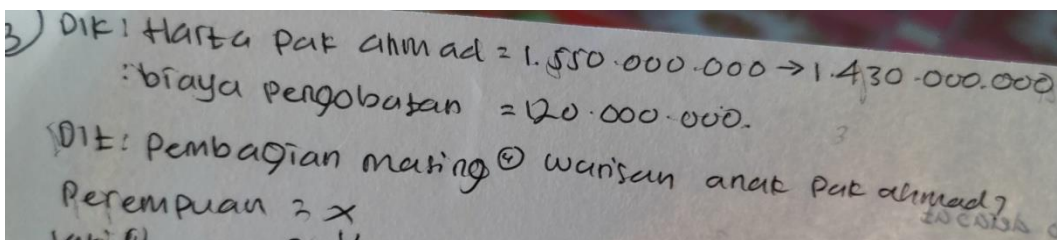 3) DIK: Harta Pak ahmad = 1.550.000.000 → 1.430.000.000
: biaya pengobatan = 120.000.000.
DIt: Pembagian masing② warisan anak pak ahmad?
Perempuan = x